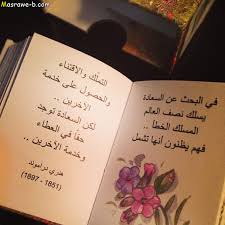 Masrawe-b.com
في البحث عن السعادة
يسلك نصف العالم
المسلك الخطأ ..
فهم يظنون أنها تشمل
التملك والاقتناء
والحصول على خدمة
الآخرين ..
لكن السعادة توجد
حقاً في العطاء
وخدمة الآخرين ..
هنري دراموند
(1851 - 1897)